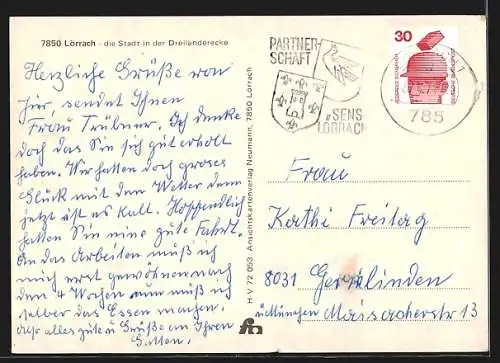 7850 Lörrach - die Stadt in der Dreiländerecke
Herzliche Grüße von
hier, sendet Ihnen
Frau Trübner. Ich denke
doch das Sie sich gut erholt
haben. Wir hatten doch groses
Glück mit dem Wetter denn
jetzt ist es kalt. Hoffendlich
hatten Sie eine gute Fahrt.
An das Arbeiten muß ich
mich erst gewöhnen nach
den 4 Wochen nun muß ich
selber das Essen machen.
alles gute u Grüße an Ihren
Gatten.
H - V 72 053 Ansichtskartenverlag Neumann, 7850 Lörrach
PARTNER-
SCHAFT
SENS
LÖRRACH
30
785
Frau
Kathi Freitag
8031 Gernlinden
ü. München Maisacherstr 13